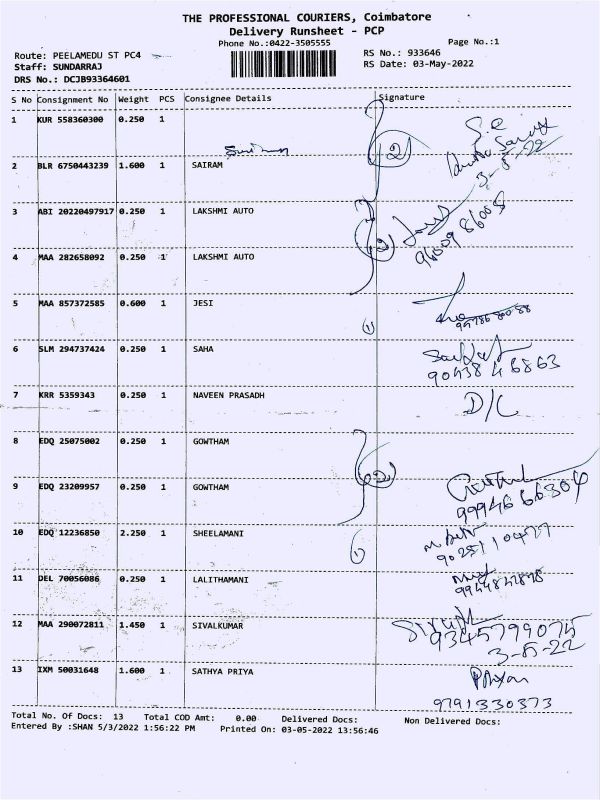 THE PROFESSIONAL COURIERS, Coimbatore
Delivery Runsheet - PCP
Phone No.:0422-3505555 Page No.:1
Route: PEELAMEDU ST PC4 RS No.: 933646
Staff: SUNDARRAJ RS Date: 03-May-2022
DRS No.: DCJB93364601
S No Consignment No Weight PCS Consignee Details Signature
1 KUR 558360300 0.250 1
2 BLR 6750443239 1.600 1 SAIRAM 2
3 ABI 20220497917 0.250 1 LAKSHMI AUTO
4 MAA 282658092 0.250 1 LAKSHMI AUTO 2 96009 86008
5 MAA 857372585 0.600 1 JESI 1
6 SLM 294737424 0.250 1 SAHA 90438 46863
7 KRR 5359343 0.250 1 NAVEEN PRASADH D/L
8 EDQ 25075002 0.250 1 GOWTHAM
9 EDQ 23209957 0.250 1 GOWTHAM 2 99946 66304
10 EDQ 12236850 2.250 1 SHEELAMANI 1
11 DEL 70056086 0.250 1 LALITHAMANI
12 MAA 290072811 1.450 1 SIVALKUMAR 9345799075
3-5-22
13 IXM 50031648 1.600 1 SATHYA PRIYA
9791330373
Total No. Of Docs: 13 Total COD Amt: 0.00 Delivered Docs: Non Delivered Docs:
Entered By :SHAN 5/3/2022 1:56:22 PM Printed On: 03-05-2022 13:56:46